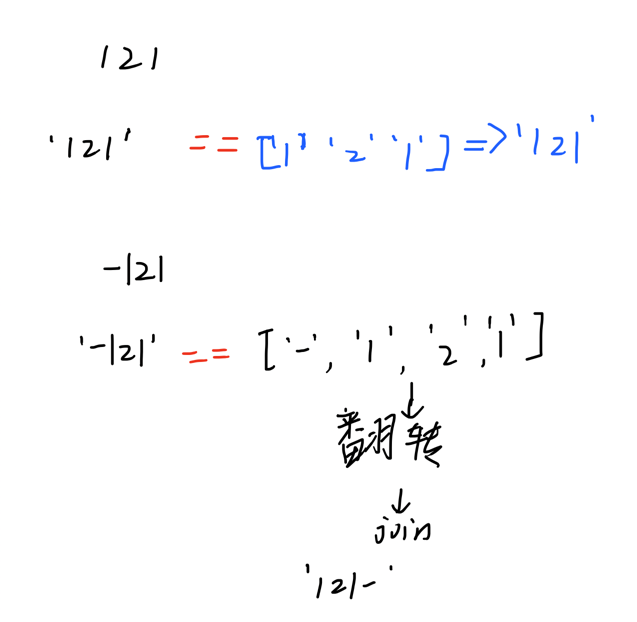 121
'121' == ['1' '2' '1'] => '121'
-121
'-121' == ['-', '1', '2', '1']
↓
翻转
↓
join
'121-'